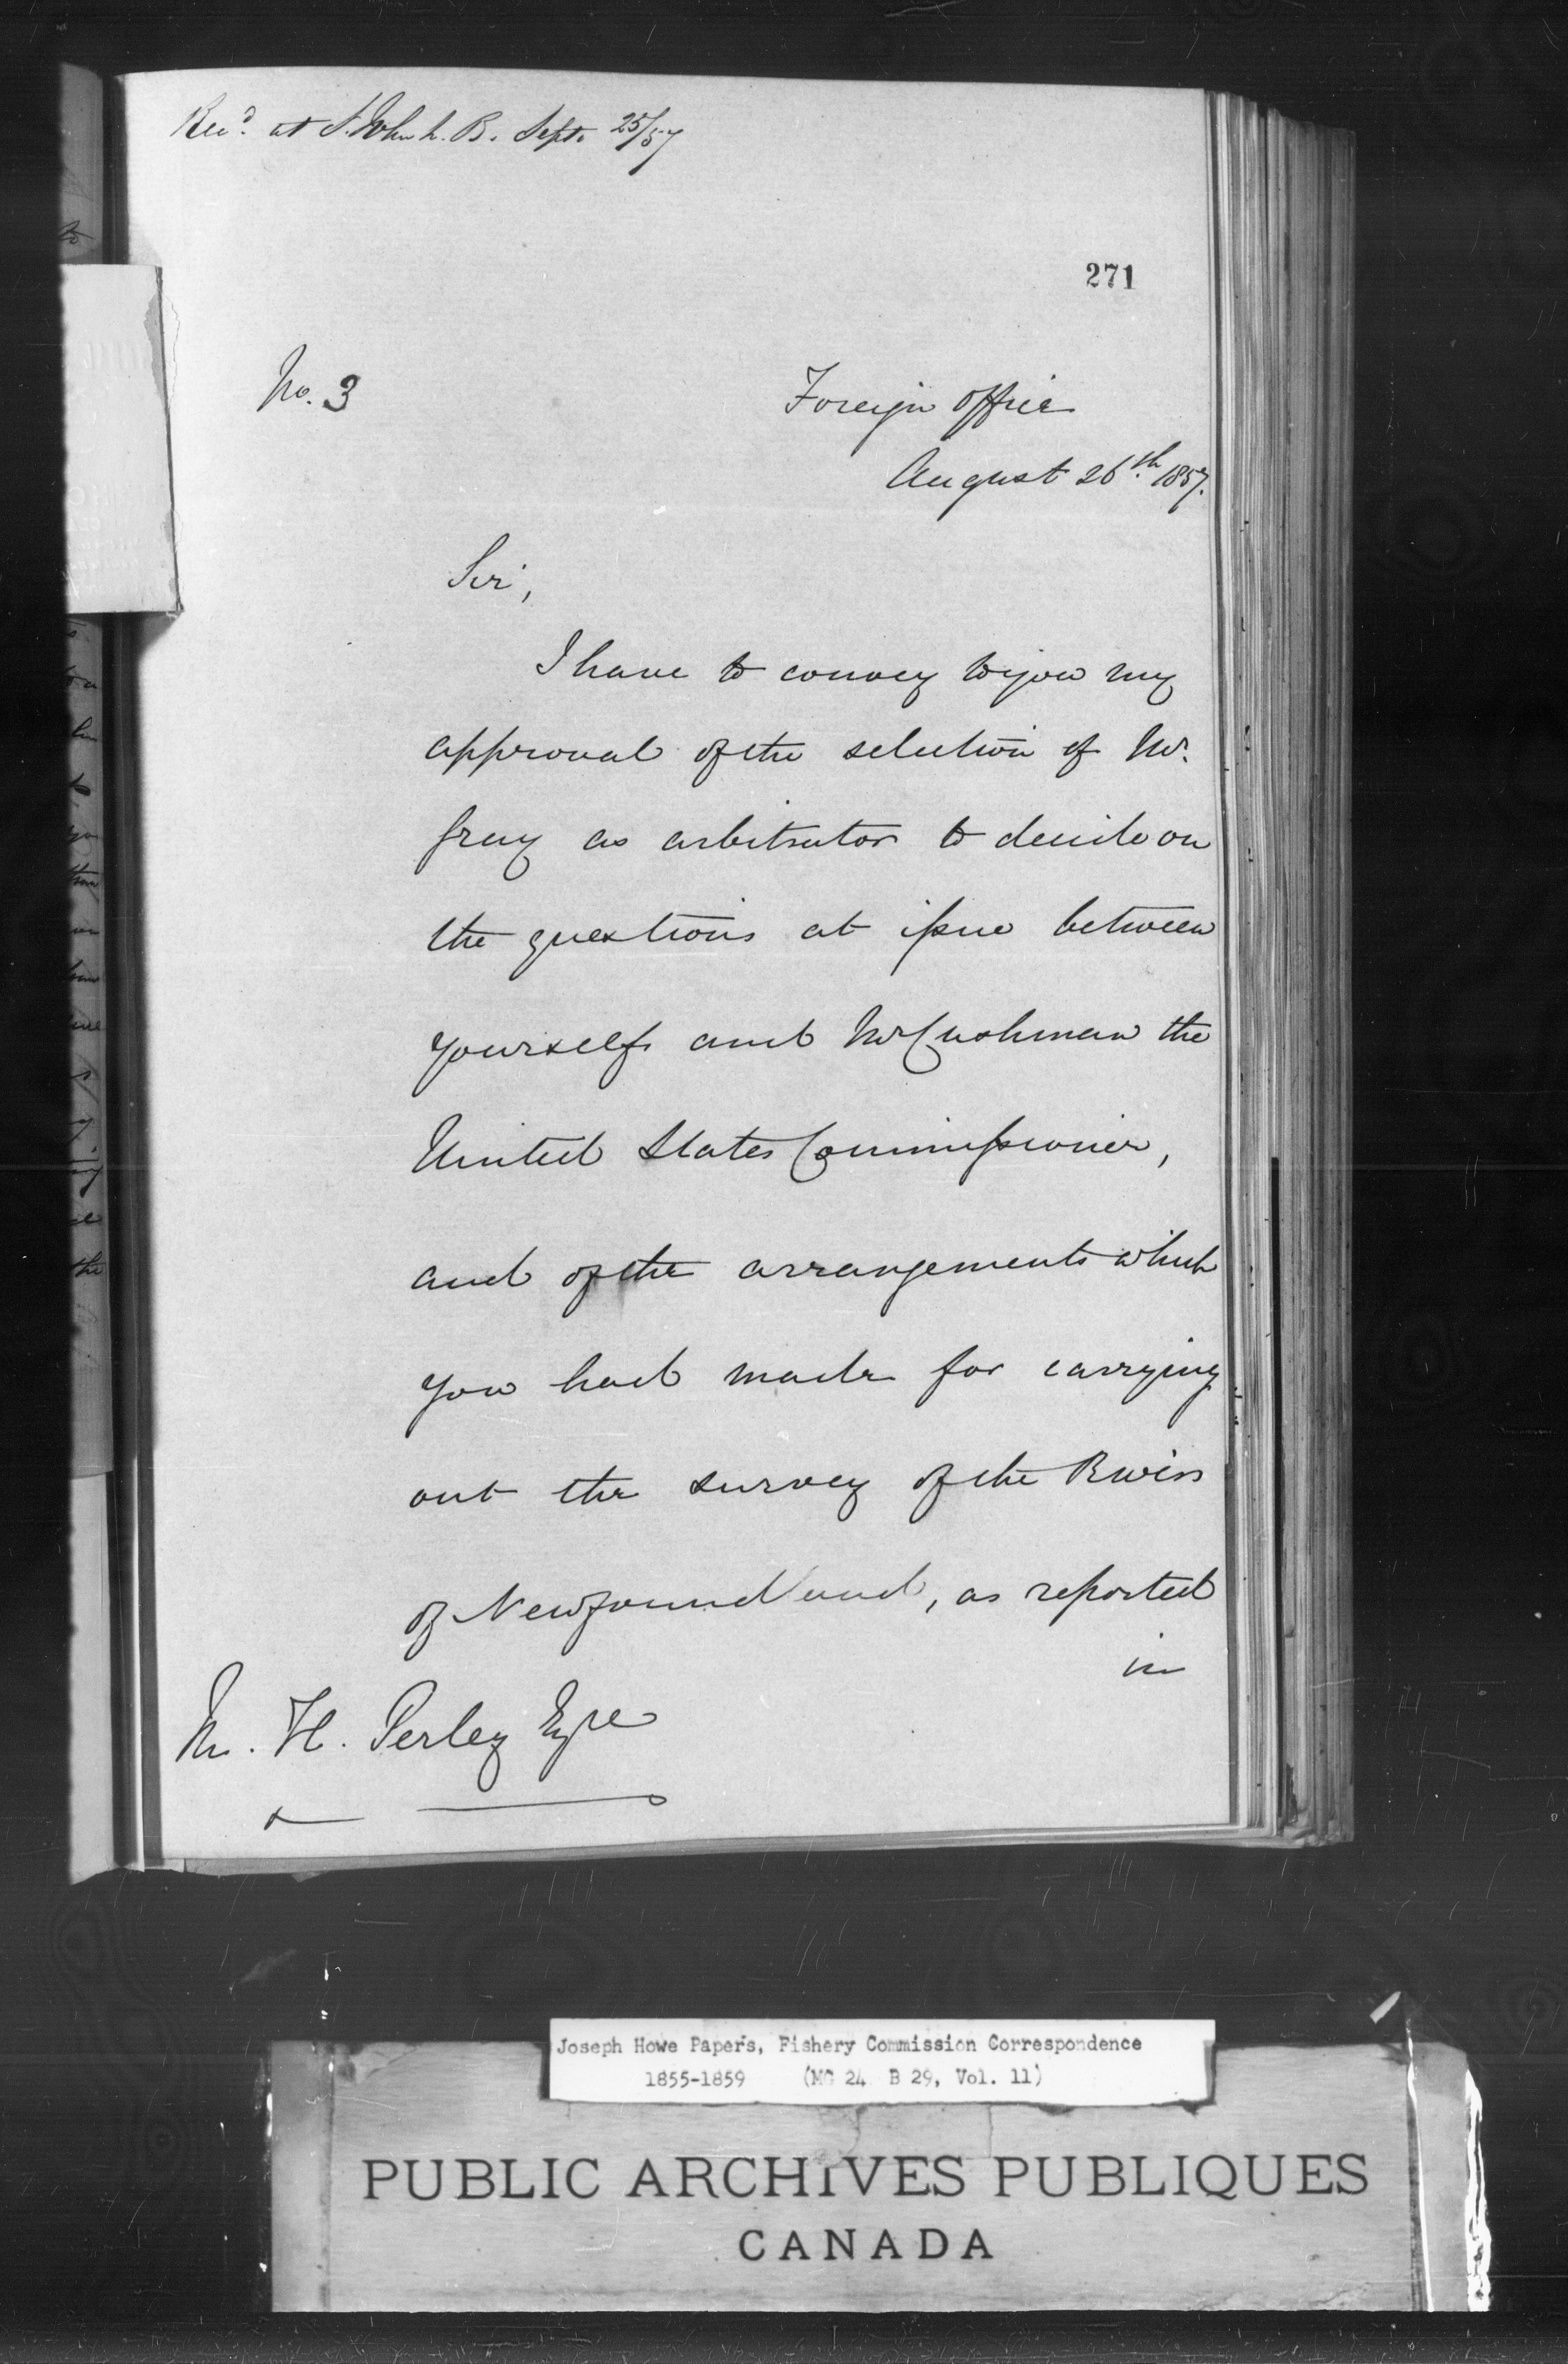 Recd. at St. John N. B. Septr. 25/57
271
No. 3
Foreign Office
August 26th. 1857.
Sir,
I have to convey to you my
approval of the selection of Mr.
Gray as arbitrator to decide on
the questions at issue between
yourself and Mr Cushman the
United States Commissioner,
and of the arrangements which
you had made for carrying
out the survey of the Rivers
of Newfoundland, as reported
in
M. H. Perley Esqre
Joseph Howe Papers, Fishery Commission Correspondence
1855-1859 (MG 24 B 29, Vol. 11)
PUBLIC ARCHIVES PUBLIQUES
CANADA